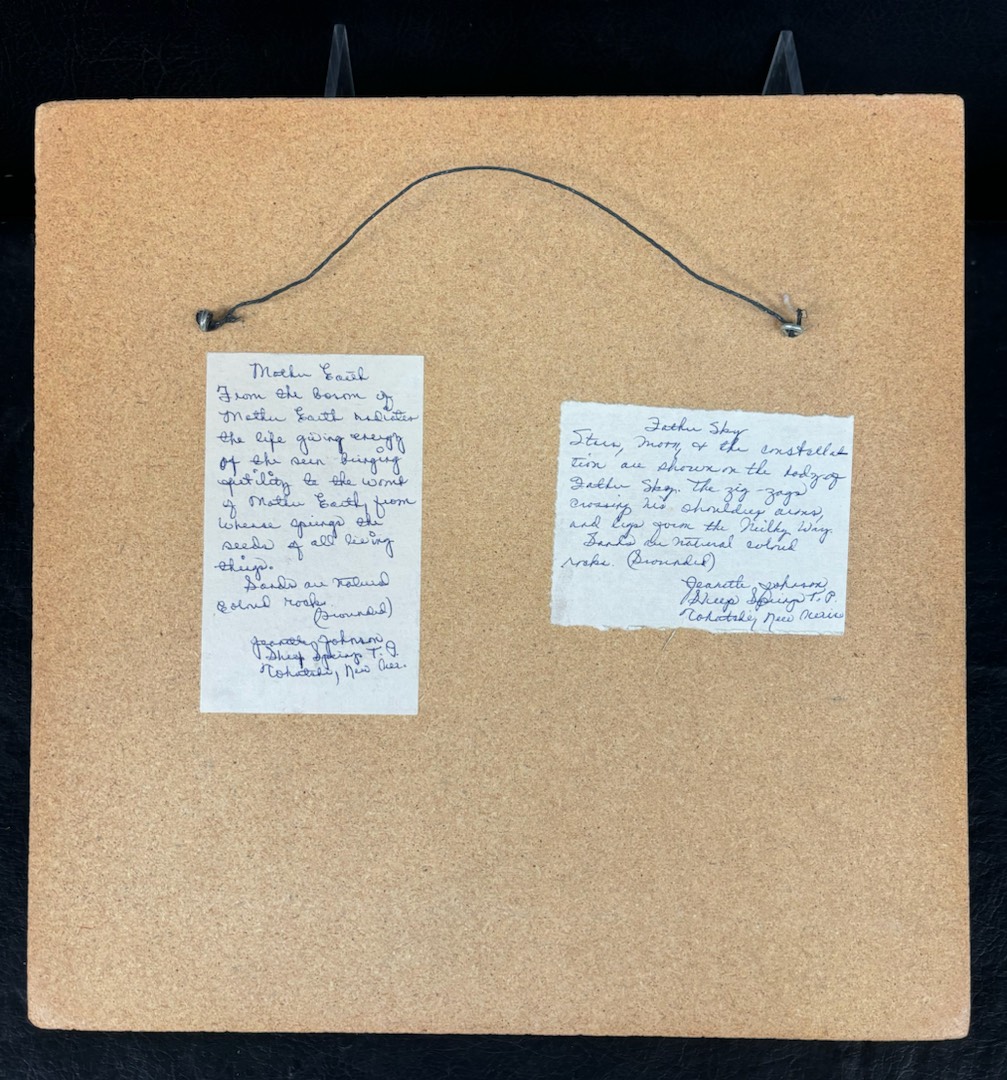 Mother Earth
From the bosom of
Mother Earth radiates
the life giving energy
of the sun bringing
fertility to the womb
of Mother Earth from
whense springs the
seeds of all living
things.
Sands are natural
colored rocks.
(Grounded)
Jeanette Johnson
Sheep Springs T. P.
Tohatchi, New Mex.
Father Sky
Stars, Moon, & the constella
tion are shown on the body of
Father Sky. The zig-zags
crossing his shoulders, arms,
and legs form the Milky Way.
Sands are natural colored
rocks. (Grounded)
Jeanette Johnson
Sheep Springs T. P.
Tohatchi, New Mexico